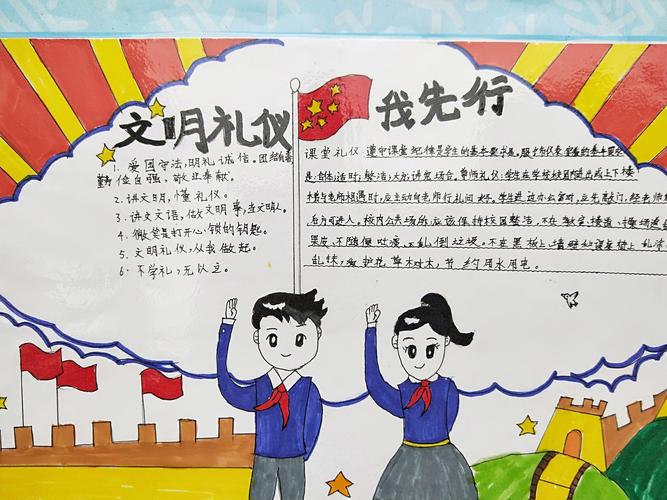 文明礼仪 我先行
1. 爱国守法,明礼诚信。团结友善
勤俭自强、敬业奉献。
2. 讲文明,懂礼仪。
3. 讲文文语,做文明事,当文明人。
4. 微笑是打开心锁的钥匙。
5. 文明礼仪,从我做起。
6. 不学礼,无以立。
课堂礼仪:遵守课堂纪律是学生的基本要求是。服饰仪表:穿着的基本要求
是:自体适时,整洁大方,讲究场合。尊师礼仪:学生在学校校园内进出或上下楼
梯与老师相遇时,应主动向老师行礼问好。学生进这办公室时,应先敲门,经老师允
后方可进人。校内公共场所应该保持校区整洁,不在教室、楼道、操场
果皮、不随便吐痰、不乱倒垃圾。不在黑板上墙壁
乱抹,爱护花草树木,节约用水用电。